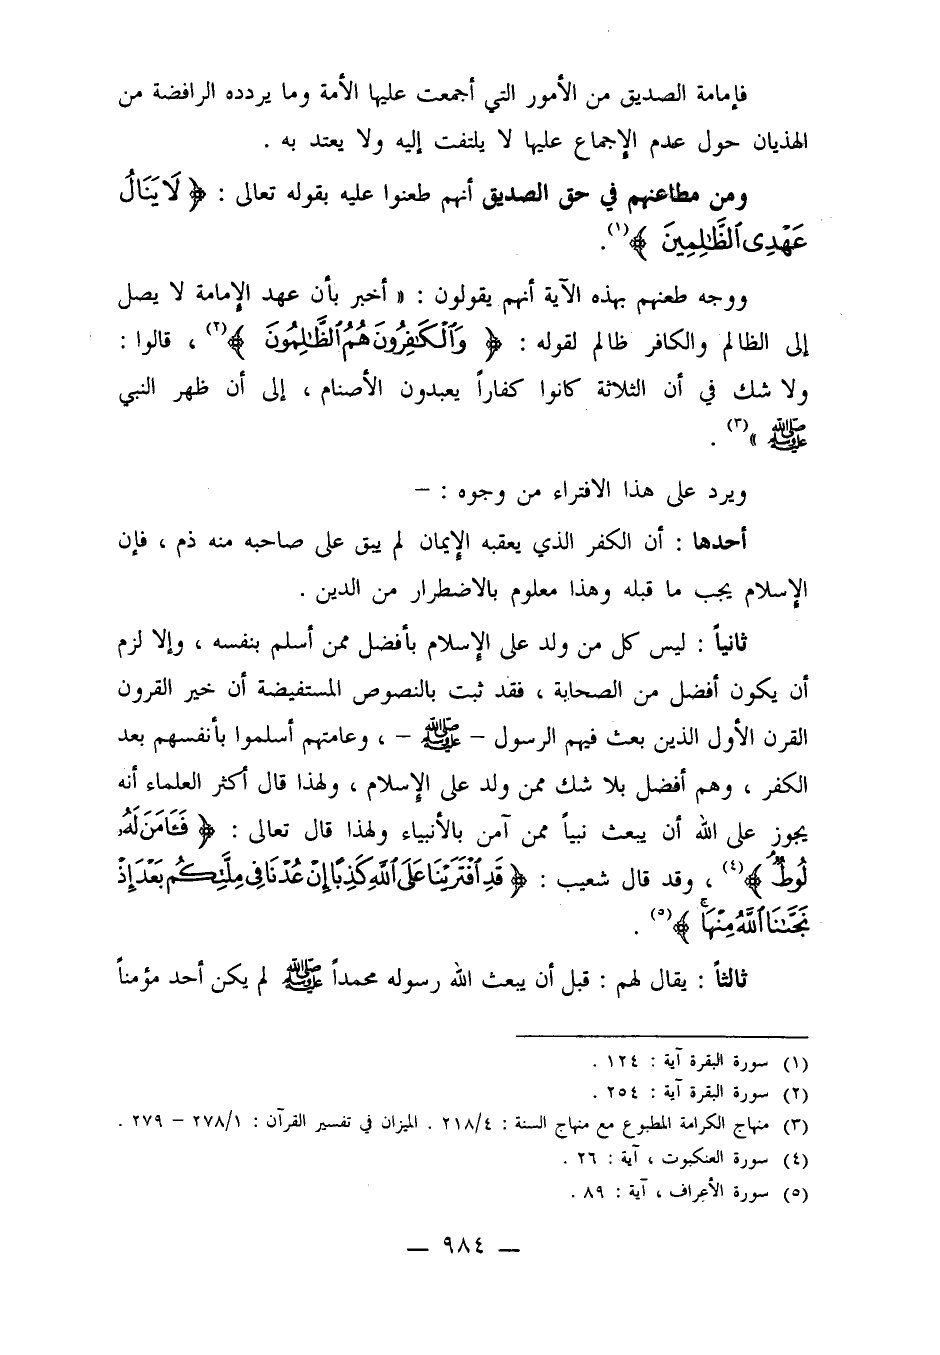 فإمامة الصديق من الأمور التي أجمعت عليها الأمة وما يردده الرافضة من
الهذيان حول عدم الإجماع عليها لا يلتفت إليه ولا يعتد به .
ومن مطاعنهم في حق الصديق أنهم طعنوا عليه بقوله تعالى : ﴿ لَا يَنَالُ
عَهْدِي ٱلظَّٰلِمِينَ ﴾(١).
ووجه طعنهم بهذه الآية أنهم يقولون : « أخبر بأن عهد الإمامة لا يصل
إلى الظالم والكافر ظالم لقوله : ﴿ وَٱلْكَٰفِرُونَ هُمُ ٱلظَّٰلِمُونَ ﴾(٢) ، قالوا :
ولا شك في أن الثلاثة كانوا كفاراً يعبدون الأصنام ، إلى أن ظهر النبي
ﷺ »(٣) .
ويرد على هذا الافتراء من وجوه : –
أحدها : أن الكفر الذي يعقبه الإيمان لم يبق على صاحبه منه ذم ، فإن
الإسلام يجب ما قبله وهذا معلوم بالاضطرار من الدين .
ثانياً : ليس كل من ولد على الإسلام بأفضل ممن أسلم بنفسه ، وإلا لزم
أن يكون أفضل من الصحابة ، فقد ثبت بالنصوص المستفيضة أن خير القرون
القرن الأول الذين بعث فيهم الرسول – ﷺ – ، وعامتهم أسلموا بأنفسهم بعد
الكفر ، وهم أفضل بلا شك ممن ولد على الإسلام ، ولهذا قال أكثر العلماء أنه
يجوز على الله أن يبعث نبياً ممن آمن بالأنبياء ولهذا قال تعالى : ﴿ فَـَٔامَنَ لَهُۥ
لُوطٌ ﴾(٤) ، وقد قال شعيب : ﴿ قَدِ ٱفْتَرَيْنَا عَلَى ٱللَّهِ كَذِبًا إِنْ عُدْنَا فِي مِلَّتِكُم بَعْدَ إِذْ
نَجَّىٰنَا ٱللَّهُ مِنْهَا ۚ ﴾(٥) .
ثالثاً : يقال لهم : قبل أن يبعث الله رسوله محمداً ﷺ لم يكن أحد مؤمناً
(١) سورة البقرة آية : ١٢٤ .
(٢) سورة البقرة آية : ٢٥٤ .
(٣) منهاج الكرامة المطبوع مع منهاج السنة : ٢١٨/٤ . الميزان في تفسير القرآن : ٢٧٨/١ – ٢٧٩ .
(٤) سورة العنكبوت ، آية : ٢٦ .
(٥) سورة الأعراف ، آية : ٨٩ .
— ٩٨٤ —